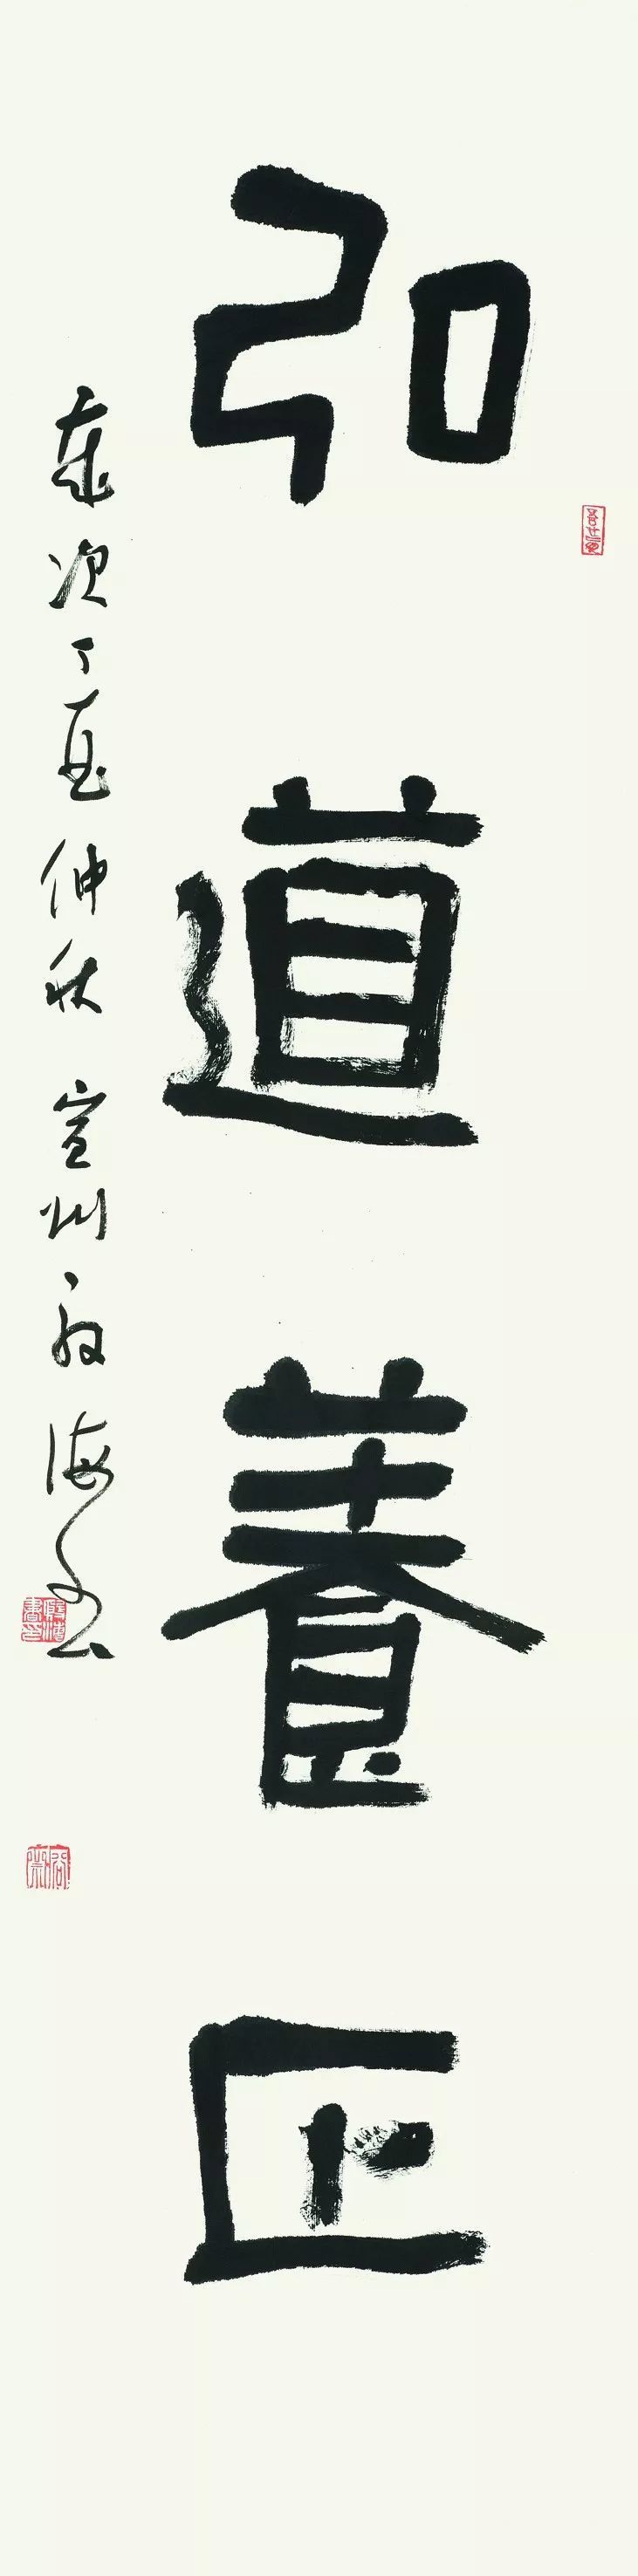 弘道養正
歲次丁酉仲秋 宣州 海书